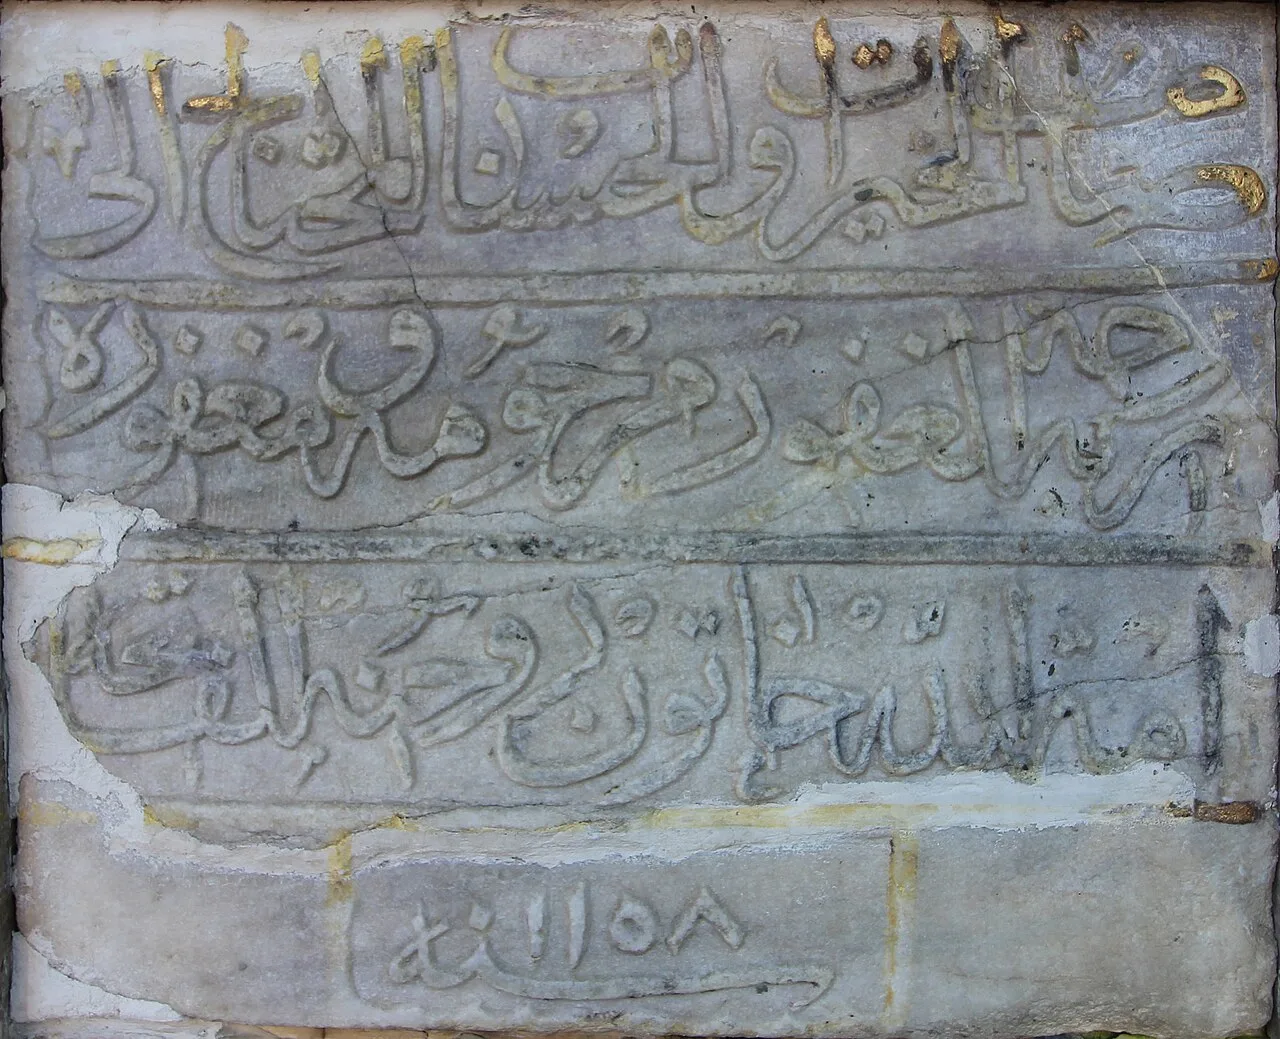 صاحب الخيرات والحسنات المحتاج الى
رحمة ربه الغفور مرحومه و مغفوره
امة الله خاتون روحنه الفاتحه
سنه ١١٥٨